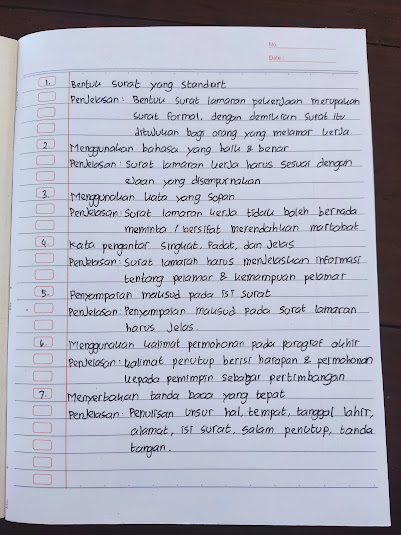 No.
Date:
1. Bentuk surat yang standart
Penjelasan: Bentuk surat lamaran pekerjaan merupakan
surat formal, dengan demikian surat itu
ditujukan bagi orang yang melamar kerja.
2. Menggunakan bahasa yang baik & benar
Penjelasan: surat lamaran kerja harus sesuai dengan
ejaan yang disempurnakan
3. Menggunakan kata yang sopan
Penjelasan: Surat lamaran kerja tidak boleh bernada
meminta / bersifat merendahkan martabat
4. Kata pengantar singkat, Padat, dan Jelas
Penjelasan: Surat lamaran harus menjelaskan informasi
tentang pelamar & kemampuan pelamar
5. Penyampaian maksud pada isi surat
Penjelasan: Penyampaian maksud pada surat lamaran
harus Jelas.
6. Menggunakan kalimat permohonan pada paragraf akhir
Penjelasan: kalimat penutup berisi harapan & permohonan
kepada pemimpin sebagai pertimbangan
7. Menyertakan tanda baca yang tepat
Penjelasan: Penulisan unsur hal, tempat, tanggal lahir,
alamat, isi surat, salam penutup, tanda
tangan.